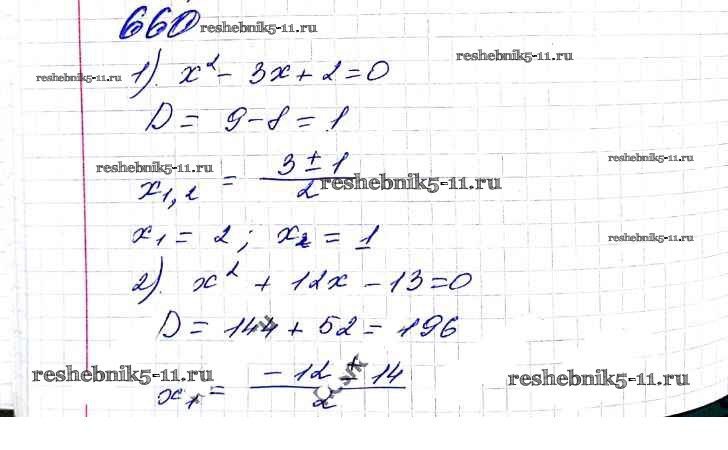 660 reshebnik5-11.ru
reshebnik5-11.ru
reshebnik5-11.ru 1). x² - 3x + 2 = 0
D = 9 - 8 = 1
reshebnik5-11.ru
reshebnik5-11.ru
x₁,₂ = (3 ± 1)/2 reshebnik5-11.ru
x₁ = 2; x₂ = 1
reshebnik5-11.ru
2). x² + 12x - 13 = 0
D = 144 + 52 = 196
reshebnik5-11.ru
reshebnik5-11.ru
x₁ = (-12 + 14)/2